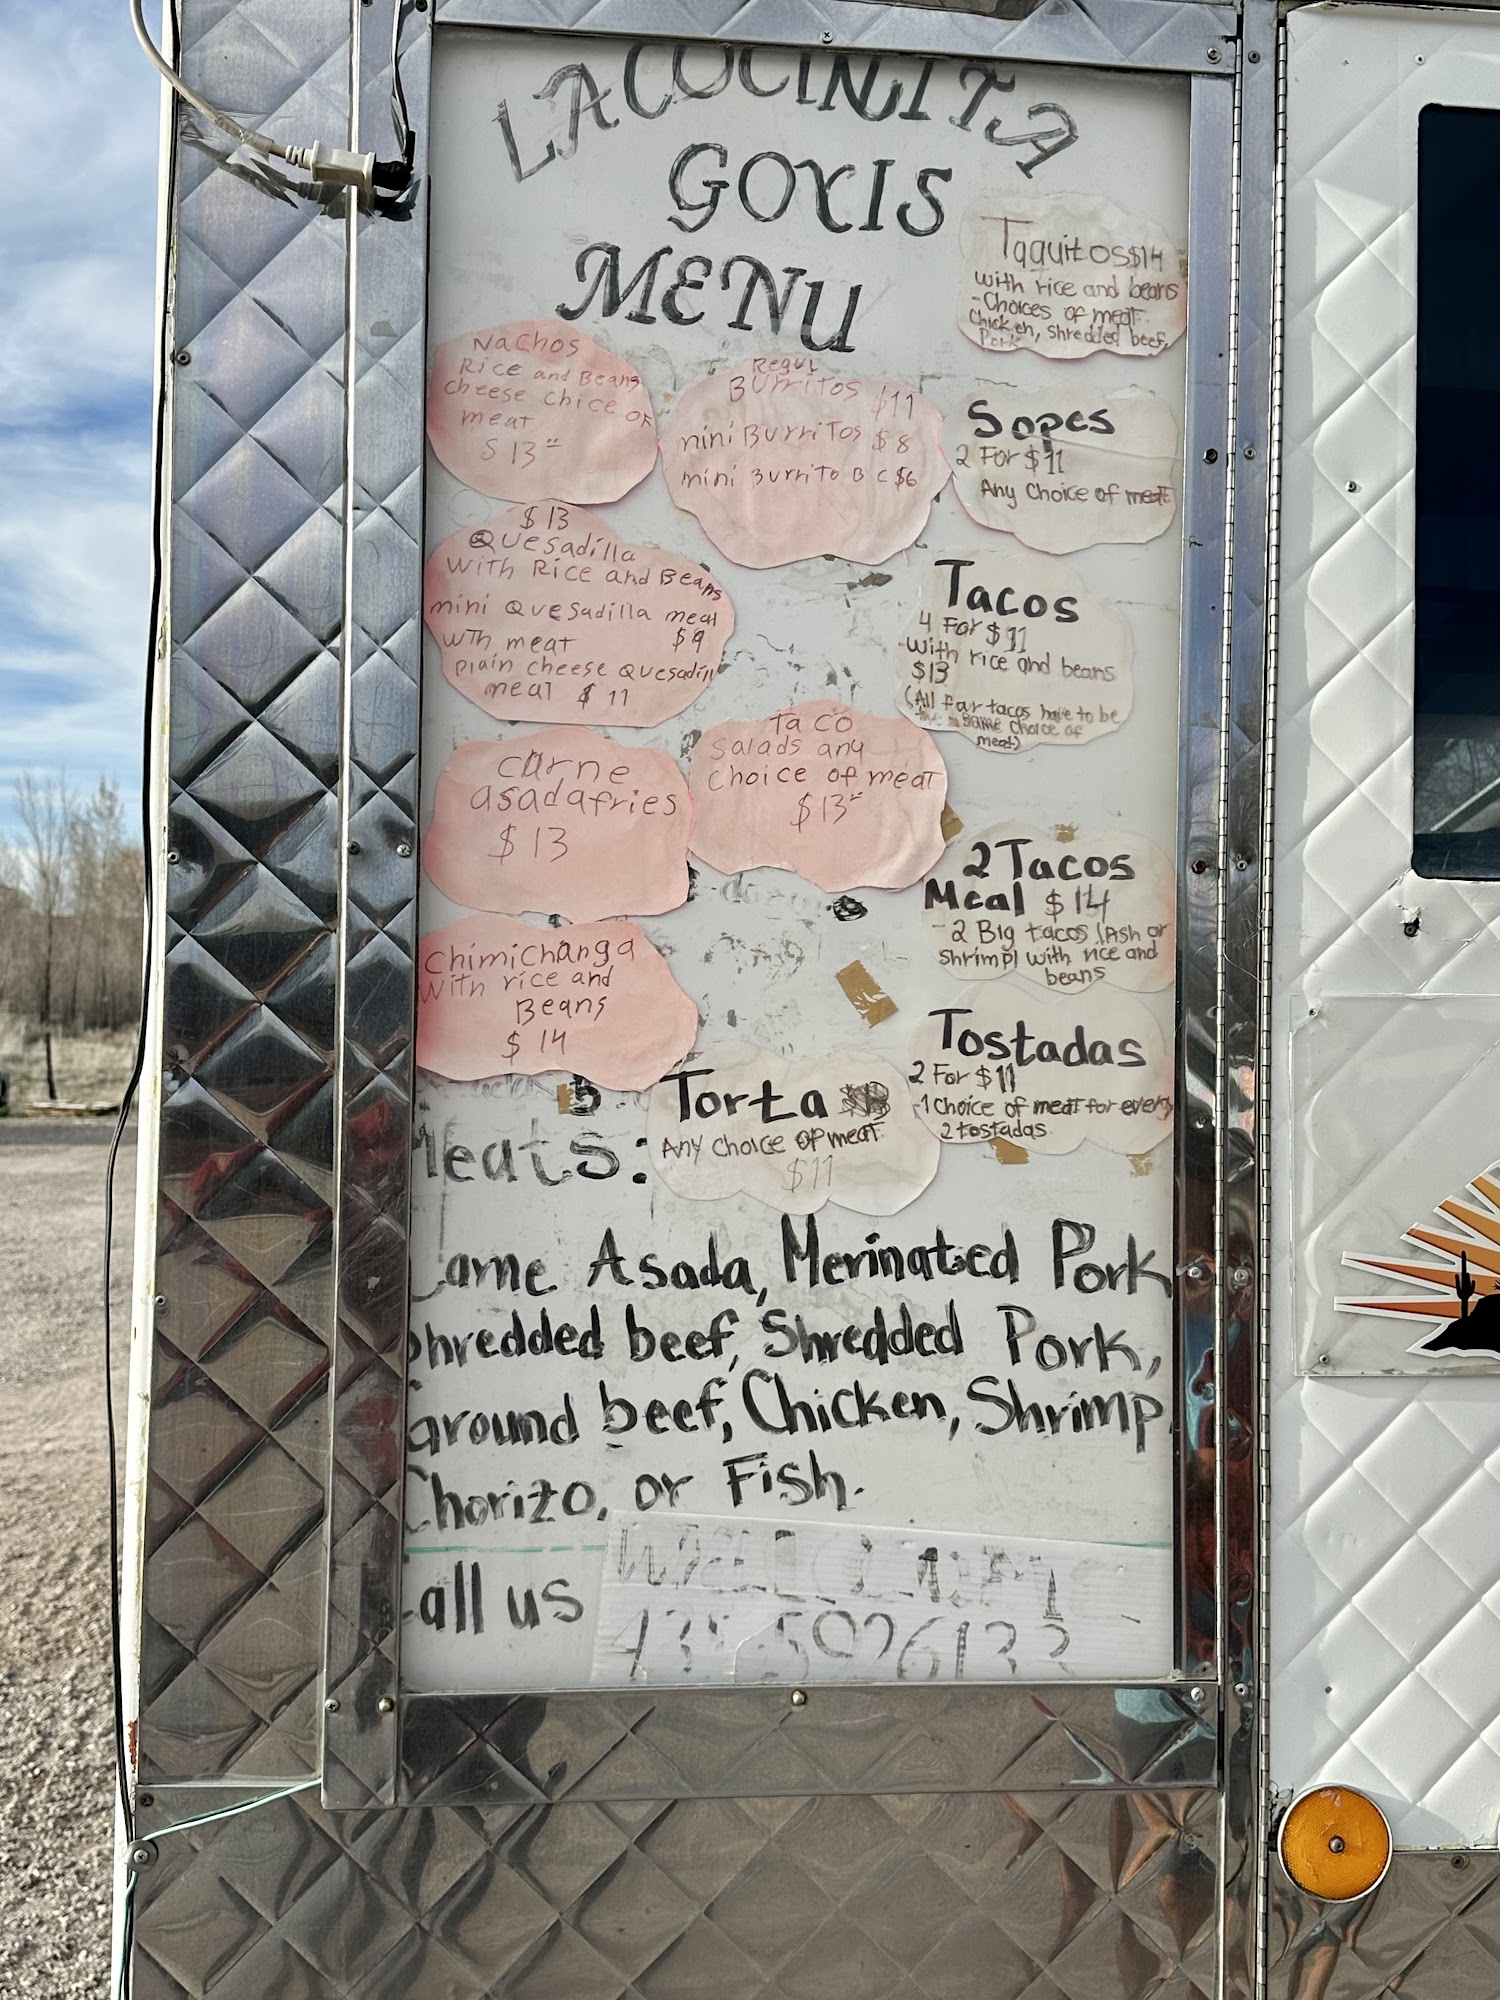 LA COCINITA
GOYIS
MENU
Taquitos $14
with rice and beans
- Choices of meat:
Chicken, shredded beef,
Pork
Nachos
Rice and Beans
cheese chice of
meat
$13
Regul
Burritos $11
mini Burritos $8
mini Burrito B C $6
Sopes
2 For $11
Any Choice of meat
$13
Quesadilla
with Rice and Beans
mini Quesadilla meal
wth meat $9
plain cheese Quesadill
meal $11
Tacos
4 For $11
-with rice and beans
$13
(All four tacos have to be
the same choice of
meat)
carne
asada fries
$13
Taco
salads any
choice of meat
$13
2 Tacos
Meal $14
- 2 Big tacos
shrimp) with rice and
beans
Chimichanga
with rice and
Beans
$14
Torta
Any choice of meat
$11
Tostadas
2 For $11
-1 Choice of meat for every
2 tostadas
Meats:
Carne Asada, Merinated Pork
Shredded beef, Shredded Pork,
Ground beef, Chicken, Shrimp,
Chorizo, or Fish.
Call us